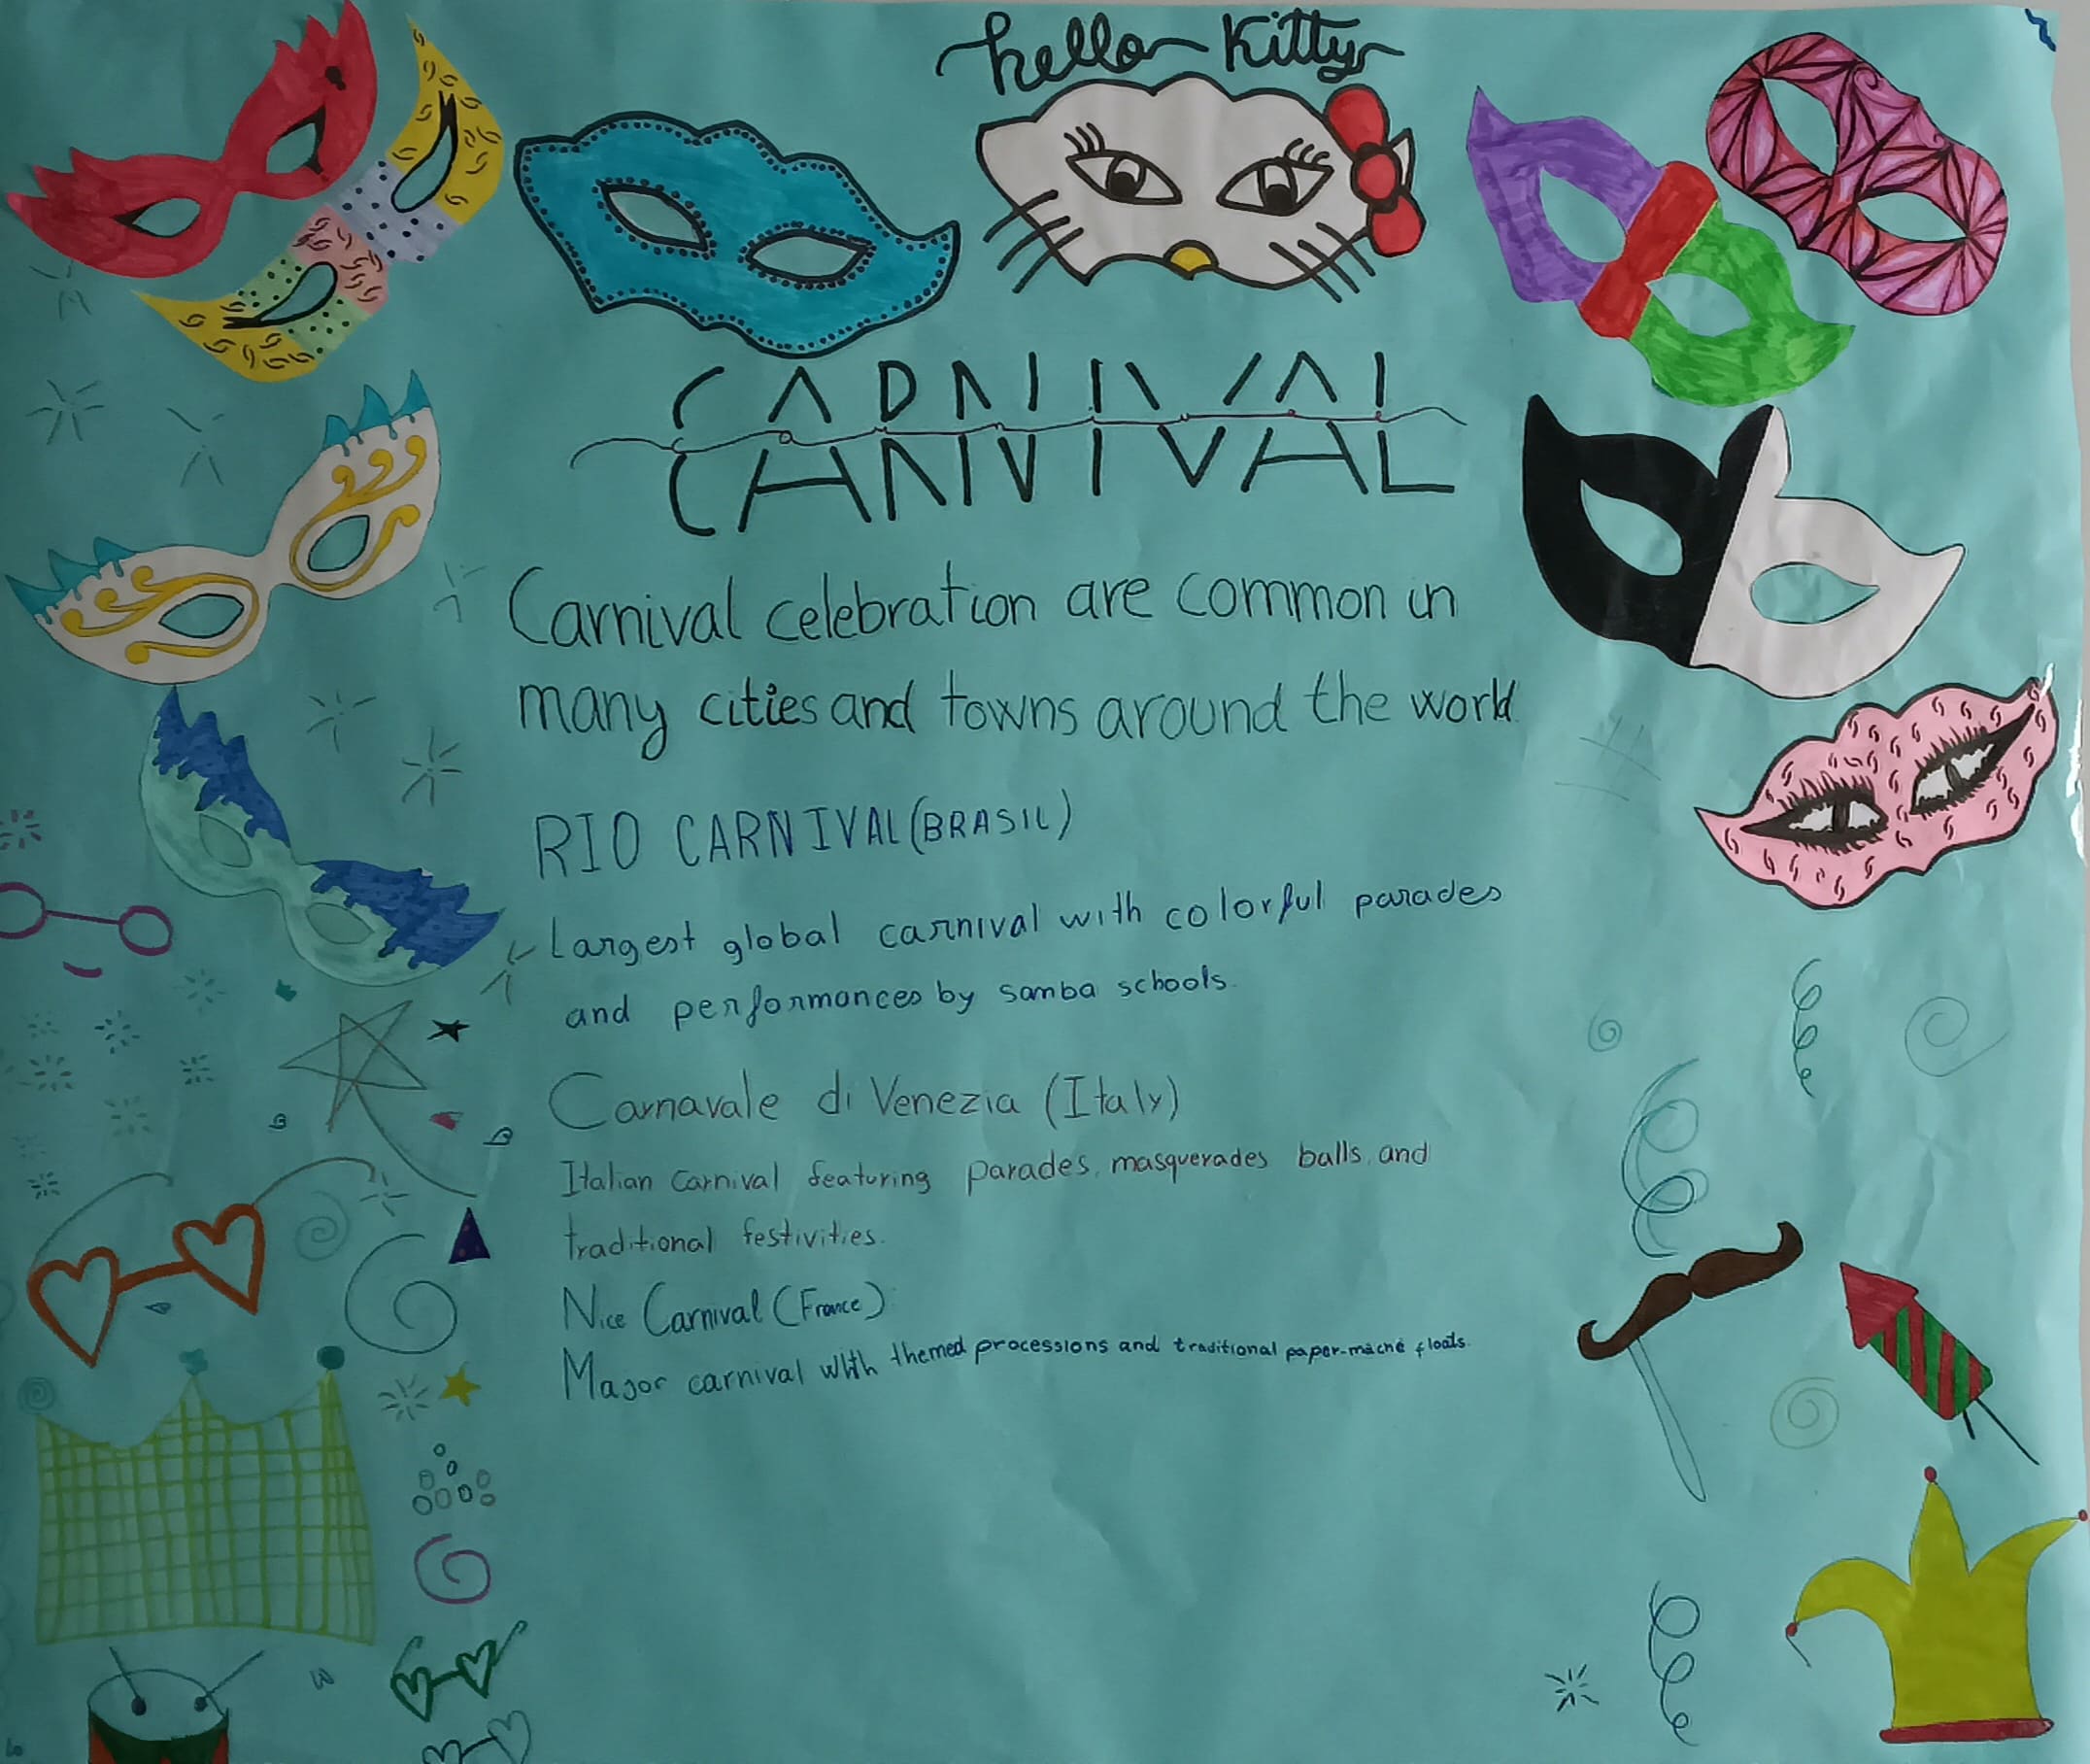 hello Kitty
CARNIVAL
Carnival celebration are common in
many cities and towns around the world
RIO CARNIVAL (BRASIL)
Largest global carnival with colorful parades
and performances by samba schools.
Carnavale di Venezia (Italy)
Italian Carnival featuring parades, masquerades balls, and
traditional festivities.
Nice Carnival (France)
Major carnival with themed processions and traditional paper-mâché floats.